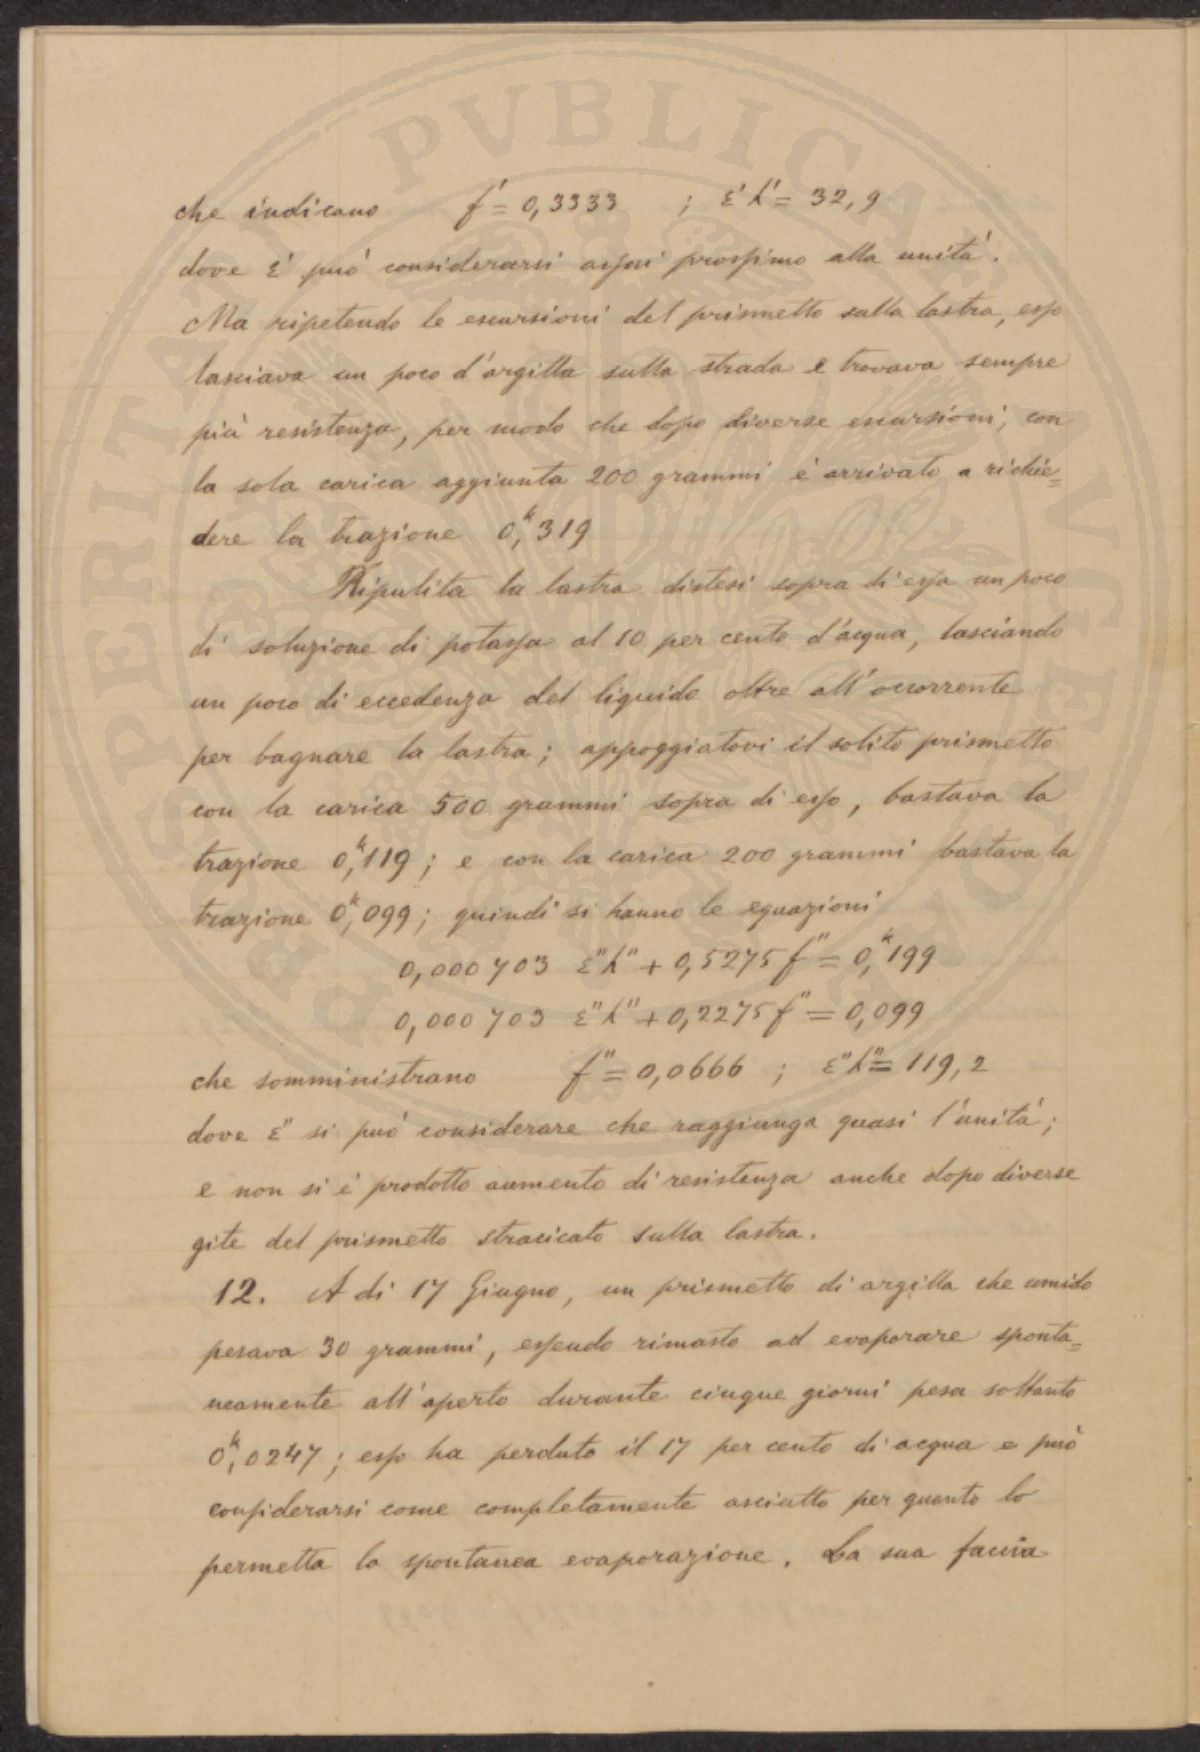 che indicano f' = 0,3333 ; ε'h' = 32,9
dove ε' può considerarsi assai prossimo alla unità.
Ma ripetendo le escursioni del prismetto sulla lastra, esso
lasciava un poco d'argilla sulla strada e trovava sempre
più resistenza, per modo che dopo diverse escursioni, con
la sola carica aggiunta 200 grammi è arrivato a richie=
dere la trazione 0,ᵏ319
Ripulita la lastra distesi sopra di essa un poco
di soluzione di potassa al 10 per cento d'acqua, lasciando
un poco di eccedenza del liquido oltre all'occorrente
per bagnare la lastra; appoggiatovi il solito prismetto
con la carica 500 grammi sopra di esso, bastava la
trazione 0,ᵏ119; e con la carica 200 grammi bastava la
trazione 0,ᵏ099; quindi si hanno le equazioni
0,000703 ε"h" + 0,5275 f" = 0,ᵏ199
0,000703 ε"h" + 0,2275 f" = 0,099
che somministrano f" = 0,0666 ; ε"h" = 119,2
dove ε" si può considerare che raggiunga quasi l'unità;
e non si è prodotto aumento di resistenza anche dopo diverse
gite del prismetto stracicato sulla lastra.
12. A di 17 Giugno, un prismetto di argilla che umido
pesava 30 grammi, essendo rimasto ad evaporare sponta=
neamente all'aperto durante cinque giorni pesa soltanto
0,ᵏ0247; esso ha perduto il 17 per cento di acqua e può
considerarsi come completamente asciutto per quanto lo
permetta la spontanea evaporazione. La sua faccia
PROSPERITATI PVBLICAE AVGENDAE